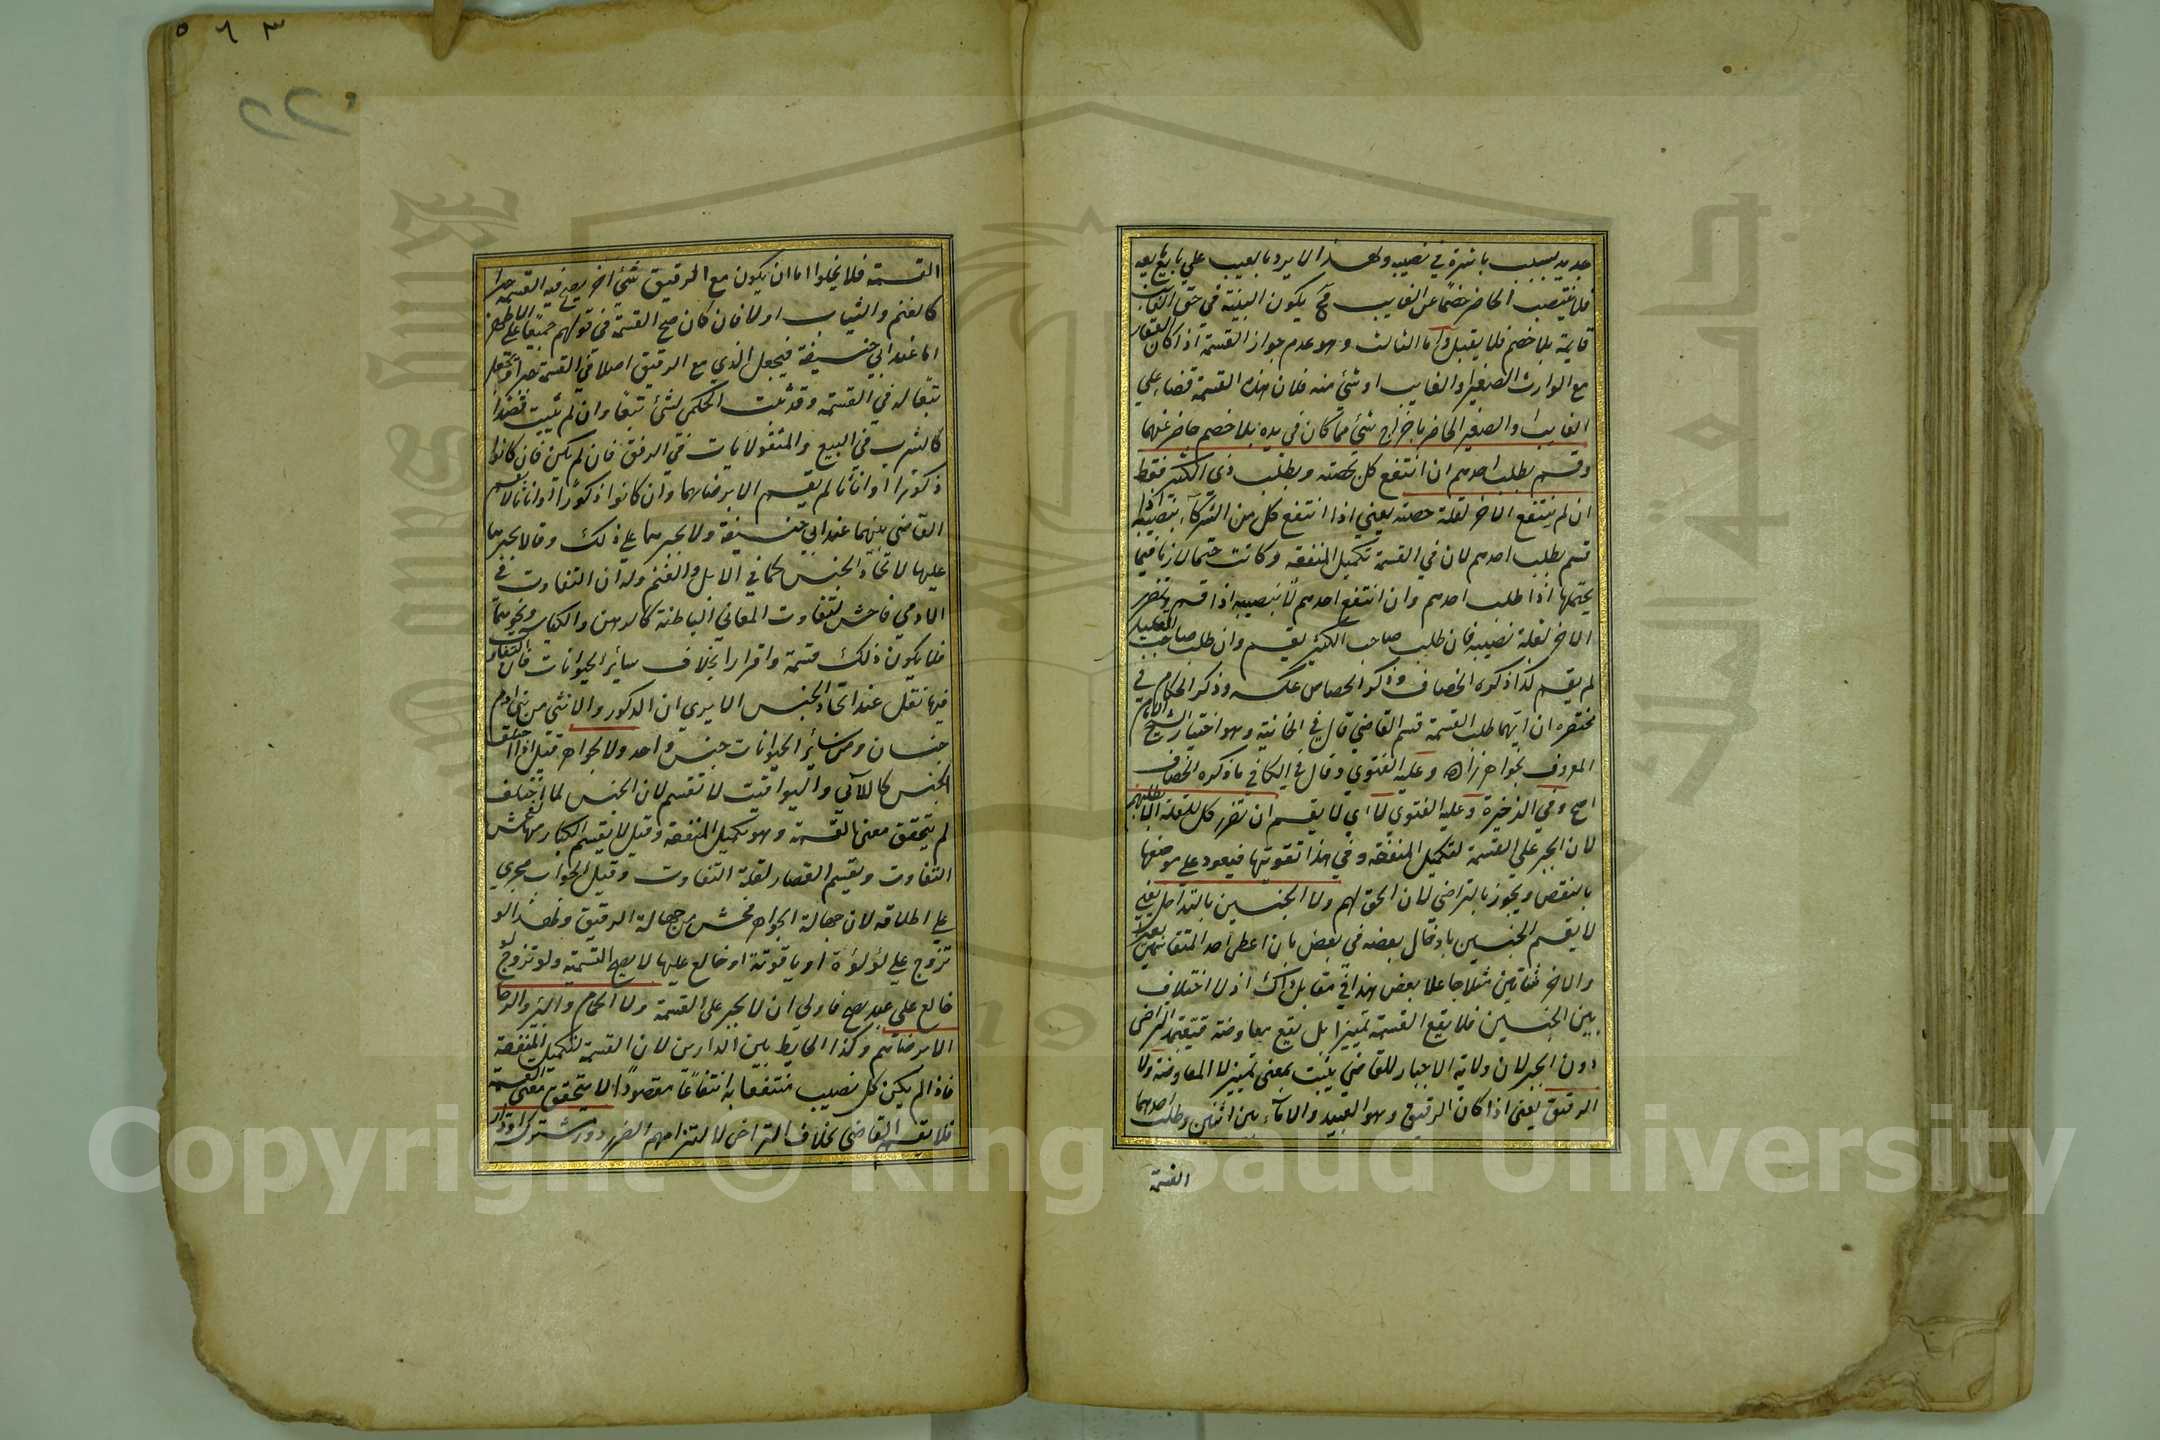 ٥ ٦ ٣
جديد بسبب باشره في نصيبه ولهذا لا يرد بالعيب على بايع بايعه
فلا ينتصب الحاضر خصما عن الغايب فح يكون البينة في حق الغايب
قايمة بلا خصم فلا يقبل واما الثالث وهو عدم جواز القسمة اذا كان العقار
مع الوارث الصغير او الغايب او شئ منه فلان هذه القسمة قضاء على
الغايب او الصغير الحاضر باخراج شئ مما كان في يده بلا خصم حاضر عنهما
وقسم بطلب احدهم ان انتفع كل بحصته وبطلب ذى الكثير فقط
ان لم ينتفع الاخر لقلة حصته يعني اذا انتفع كل من الشركاء بنصيبه
قسم بطلب احدهم لان في القسمة تكميل المنفعة وكانت حتما لازما فيما
يحتملها اذا طلب احدهم وان انتفع احدهم لا بنصيبه اذا قسم وتضرر
الاخر لقلة نصيبه فان طلب صاحب الكثير يقسم وان طلب صاحب القليل
لم يقسم كذا ذكره الخصاف وذكر الجصاص عكسه وذكر الحاكم في
مختصره ان ايهما طلب القسمة قسم القاضي قال في الخانية وهو اختيار الشيخ الامام
المعروف بخواهرزاده وعليه الفتوي وقال في الكافي ما ذكره الخصاف
اصح وفي الذخيرة وعليه الفتوي لا اي لا يقسم ان تضرر كل للقلة الا بطلبهم
لان الجبر على القسمة لتكميل المنفعة وفي هذا تفويتها فيعود على موضعها
بالنقض ويجوز بالتراضي لان الحق لهم ولا الجنسين بالتداخل يعني
لا يقسم الجنسين بادخال بعضه في بعض بان اعطى احد المتقاسمين بعيرا
والاخر شاتين مثلا جاعلا بعض هذا في مقابل ذاك اذ لا اختلاف
بين الجنسين فلا يقع القسمة تمييزا بل يقع معاوضة فيعتمد التراضي
دون الجبر لان ولاية الاجبار للقاضي يثبت بمعنى تمييز لا المعاوضة ولا
الرقيق يعني اذا كان الرقيق وهو العبيد والاماء بين اثنين وطلب احدهما
القسمة
القسمة فلا يخلوا اما ان يكون مع الرقيق شئ اخر يصح فيه القسمة جبرا
كالغنم والثياب اولا فان كان صح القسمة في قولهم جميعا على الاظهر
اما عند ابي حنيفة فيجعل الذي مع الرقيق اصلا في القسمة جبرا ويجعل
تبعا له في القسمة وقد يثبت الحكم لشئ تبعا وان لم يثبت قصدا
كالشرب في البيع والمنقولات في الوقف فان لم يكن فان كانوا
ذكورا او اناثا لم يقسم الا برضاهما وان كانوا ذكورا او اناثا لا يقسم
القاضي بينهما عند ابي حنيفة ولا يجبرهما على ذلك وقالا يجبرهما
عليها لاتحاد الجنس كما في الابل والغنم وله ان التفاوت في
الادمي فاحش لتفاوت المعاني الباطنة كالذهن والكياسة ونحوهما
فلا يكون ذلك قسمة وافرازا بخلاف سائر الحيوانات فان التفاوت
فيها نقل عند اتحاد الجنس الا يرى ان الذكور والانثي من بني ادم
جنسان ومن سائر الحيوانات جنس واحد ولا الجواهر قيل اذا اختلف
الجنس كاللآلي واليواقيت لا تقسم لان الجنس لما اختلف
لم يتحقق معنى القسمة وهو تكميل المنفعة وقيل لا يقسم الكبار منها لفحش
التفاوت ويقسم الصغار لقلة التفاوت وقيل الجواب مجري
على اطلاقه لان جهالة الجواهر افحش من جهالة الرقيق ولهذا لو
تزوج على لؤلؤة او ياقوتة او خالع عليها لا يصح التسمية ولو تزوج او
خالع على عبد يصح فاولي ان لا يجبر على القسمة ولا الحمام والبئر والرحا
الا برضائهم وكذا الحايط بين الدارين لان القسمة لتكميل المنفعة
فاذا لم يكن كل نصيب منتفعا به انتفاعا مقصودا لا يتحقق معنى القسمة
فلا يقسم القاضي بخلاف التراضي لالتزامهم الضرر دور مشتركة او دار
Copyright © King Saud University